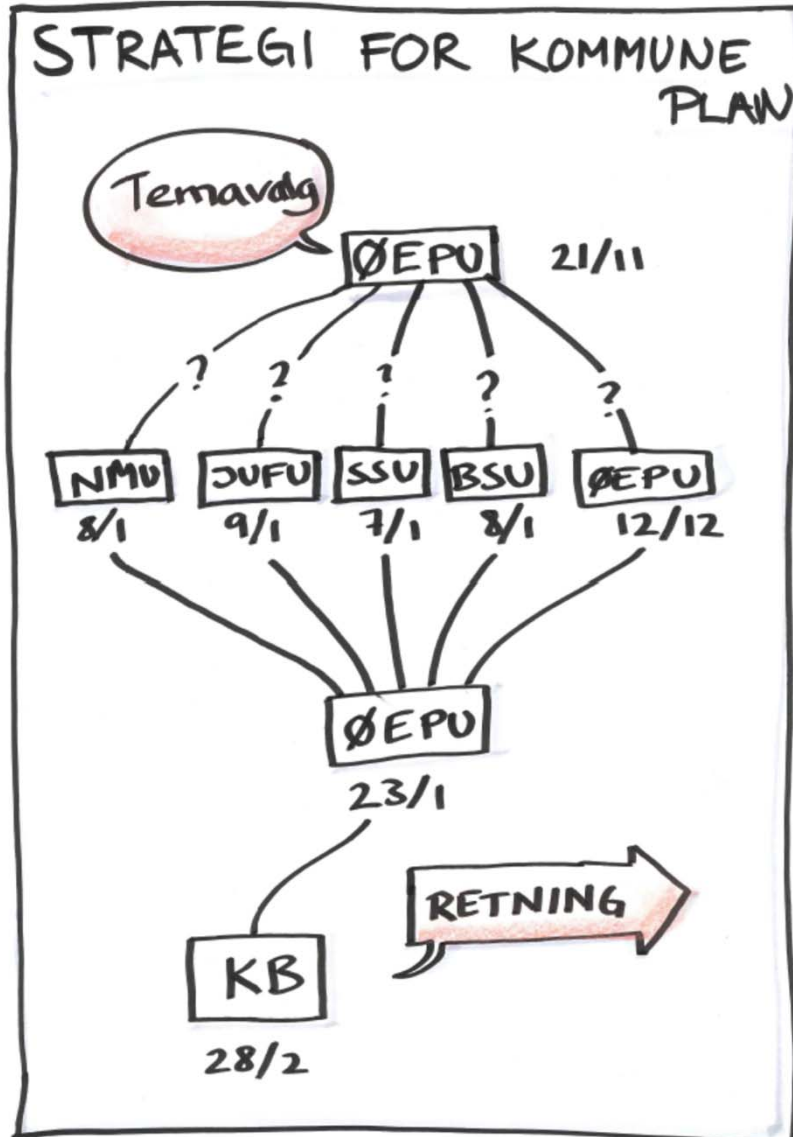 STRATEGI FOR KOMMUNE
PLAN
Temavalg
ØEPU 21/11
? ? ? ? ?
NMU JUFU SSU BSU ØEPU
8/1 9/1 7/1 8/1 12/12
ØEPU
23/1
RETNING
KB
28/2